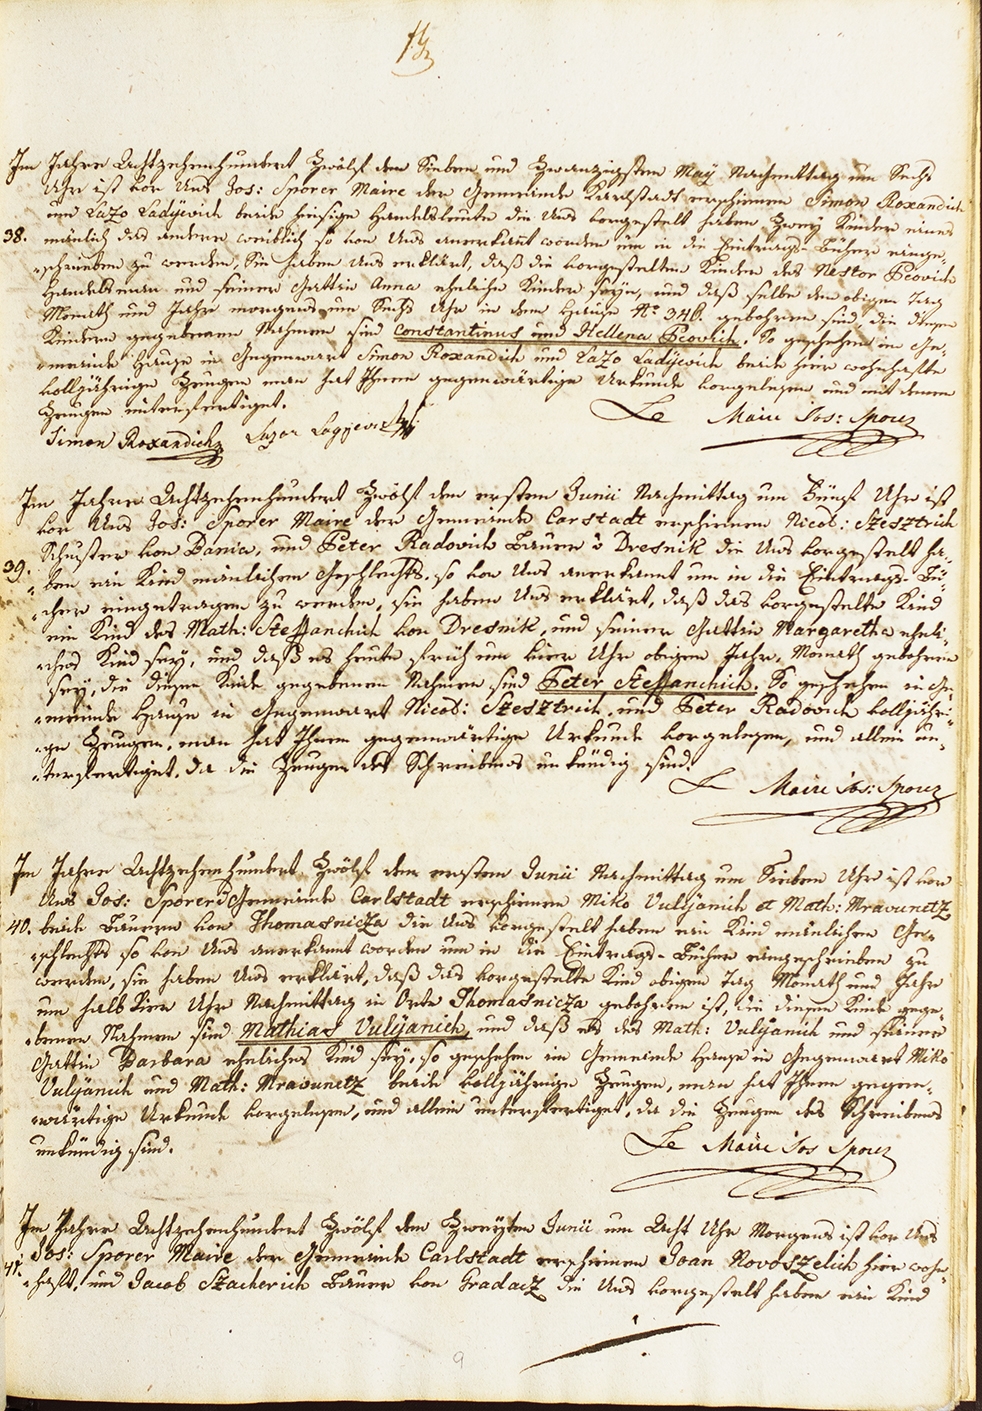 Im Jahre Achtzehenhundert Zwölf den Sieben und Zwanzigsten May Nachmittag um Sechs
Uhr ist vor Uns Jos: Sporer Maire der Gemeinde Karlstadt erschienen Simon Roxandich
und Lazo Ladÿevich beide hiesige Handelsleute die Uns vorgestelt haben Zwey Kinder eines
38. mänlich das andere weiblich so von Uns anerkant worden um in die Eintrags-Bücher einge-
schrieben zu werden, Sie haben Uns erklärt, daß die vorgestelten Kinder des Nestor Pcovich
Handelsman und seiner Gattin Anna eheliche Kinder seÿn, und daß selbe den obigen Tag
Monath und Jahr morgens um Sechs Uhr in dem Hause No 346. gebohren sind, die diesen
Kindern gegebenen Nahmen sind Constantinus und Hellena Pcovich. So geschehen im Ge-
meinde Hause in Gegenwart Simon Roxandich und Lazo Ladÿevich beide hier wohnhafte
volljährige Zeugen man hat Ihnen gegenwärtige Urkunde vorgelesen und mit denen
Zeugen unterfertiget.
Simon Roxandich Lazar Le Maire Jos: Sporer
Im Jahre Achtzehenhundert Zwölf den ersten Junii Nachmittag um Fünf Uhr ist
vor Uns Jos: Sporer Maire der Gemeinde Carstadt erschienen Nicol: Szesztrich
Schuster von Bania, und Peter Radovich Bauer v Dresnik die Uns vorgestelt ha-
39. ben ein Kind mänlichen Geschlechts, so von Uns anerkannt um in die Eintrags-Bü-
cher eingetragen zu werden, sie haben Uns erklärt, daß das vorgestelte Kind
ein Kind des Math: Steffanchich von Dresnik, und seiner Gattin Margaretha eheli-
ches Kind seÿ, und daß es heute früh um vier Uhr obigen Jahr, Monath gebohren
seÿ, die diesen Kinde gegebenen Nahmen sind Peter Steffanchich. So geschehen im Ge-
meinde Hause in Gegenwart Nicol: Szesztrich, und Peter Radovich volljähri-
ge Zeugen, man hat Ihnen gegenwärtige Urkunde vorgelesen, und allein un-
terfertiget, da die Zeugen des Schreibens unkündig sind.
Le Maire Jos: Sporer
Im Jahre Achtzehenhundert Zwölf den ersten Junii Nachmittag um Sieben Uhr ist vor
Uns Jos: Sporer Gemeinde Carlstadt erschienen Miko Vulÿanich et Math: Mravunetz
40. beide Bauern von Thomasnicza die Uns vorgestelt haben ein Kind mänlichen Ge-
schlechts so von Uns anerkannt worden um in die Eintrags-Bücher eingeschrieben zu
werden, sie haben Uns erklärt, daß das vorgestelte Kind obigen Tag Monath und Jahr
um halb vier Uhr Nachmittag in Orte Thomasnicza gebohren ist, die diesen Kinde gege-
benen Nahmen sind Mathias Vulÿanich, und daß es des Math: Vulÿanich und seiner
Gattin Barbara eheliches Kind seÿ, so geschehen im Gemeinde Hause in Gegenwart Miko
Vulÿanich und Math: Mravunetz beide volljährige Zeugen, man hat Ihnen gegen-
wärtige Urkunde vorgelesen, und allein unterfertiget, da die Zeugen des Schreibens
unkündig sind.
Le Maire Jos Sporer
Im Jahre Achtzehenhundert Zwölf den Zweÿten Junii um Acht Uhr Morgens ist vor Uns
41. Jos: Sporer Maire der Gemeinde Carlstadt erschienen Joan Novoszelich hier wohn-
haft, und Jacob Szacherich Bauer von Gradacz die Uns vorgestelt haben ein Kind
9